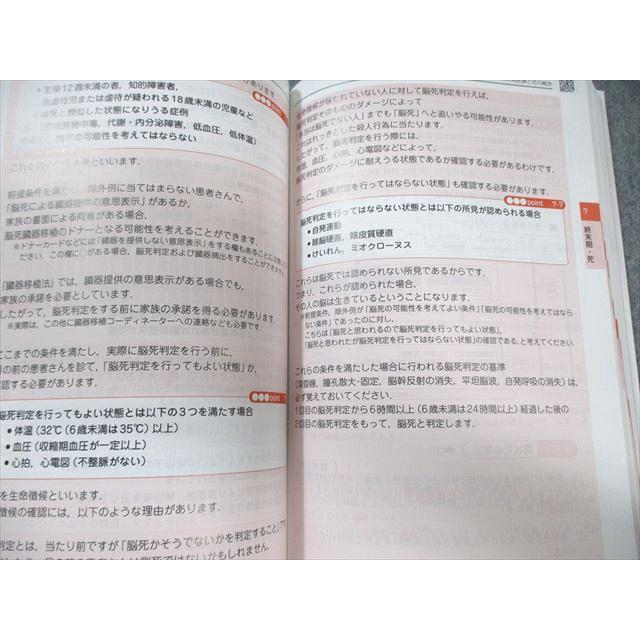 ・生後12週未満の者，知的障害者，
被虐待児または虐待が疑われる18歳未満の児童など
・脳死と類似した状態になりうる症例
（急性薬物中毒，代謝・内分泌障害，低血圧，低体温）
の可能性を考えてはならない
point
これを
といいます．
前提条件を満たし，除外例に当てはまらない患者さんで，
「脳死による臓器提供の意思表示」があるか，
家族の書面による同意がある場合，
脳死臓器移植のドナーとなる可能性を考えることができます．
※ドナーカードなどには「臓器を提供しない意思表示」をする欄もあることに注意して
ださい．この欄に○がある場合，脳死判定および臓器摘出をすることができません．
「臓器移植法」では，臓器提供の意思表示がある場合でも，
家族の承諾を必要としています．
したがって，脳死判定をする前に家族の承諾を得る必要があります．
※実際は，この他に臓器移植コーディネーターへの連絡なども必要です．
ここまでの条件を満たし，実際に脳死判定を行う前に，
目の前の患者さんを診て，「脳死判定を行ってもよい状態」か，
確認する必要があります．
point
脳死判定を行ってもよい状態とは以下の3つを満たす場合
・体温（32℃（6歳未満は35℃）以上）
・血圧（収縮期血圧が一定以上）
・心拍，心電図（不整脈がない）
を生命徴候といいます．
徴候の確認には，以下のような理由があります．
判定とは，当たり前ですが「脳死かそうでないかを判定すること」です
目の前の患者さんは脳死ではないかもしれません．
生命徴候が保たれていない人に対して脳死判定を行えば，
脳死判定そのもののダメージによって
「脳死でない人」までも「脳死」へと追いやる可能性があります．
これはれっきとした殺人行為に当たります．
したがって，脳死判定を行う際には，
体温，血圧，心拍，心電図などによって，
脳死判定のダメージに耐えうる状態であるか確認する必要があるわけです．
さらに，「脳死判定を行ってはならない状態」も確認する必要があります．
point
7-7
脳死判定を行ってはならない状態とは以下の所見が認められる場合
・自発運動
・除脳硬直，除皮質硬直
・けいれん，ミオクローヌス
これらは脳死では認められない所見であるからです．
つまり，これらが認められた場合，
その人の脳は生きているということになります．
※前提条件，除外例が「脳死の可能性を考えてよい条件」「脳死の可能性を考えてはなら
ない条件」であったのに対し，
こちらは「脳死と思われるので脳死判定を行ってもよい状態」，
「脳死と思われたが脳死判定を行ってはならない状態」の確認である，と考えてください．
これらの条件を満たした場合に行われる脳死判定の基準
（深昏睡，瞳孔散大・固定，脳幹反射の消失，平坦脳波，自発呼吸の消失）は，
必ず覚えておいてください．
1回目の脳死判定から6時間以上（6歳未満は24時間以上）経過した後の
2回目の脳死判定をもって，脳死と判定します．
7
終末期・死